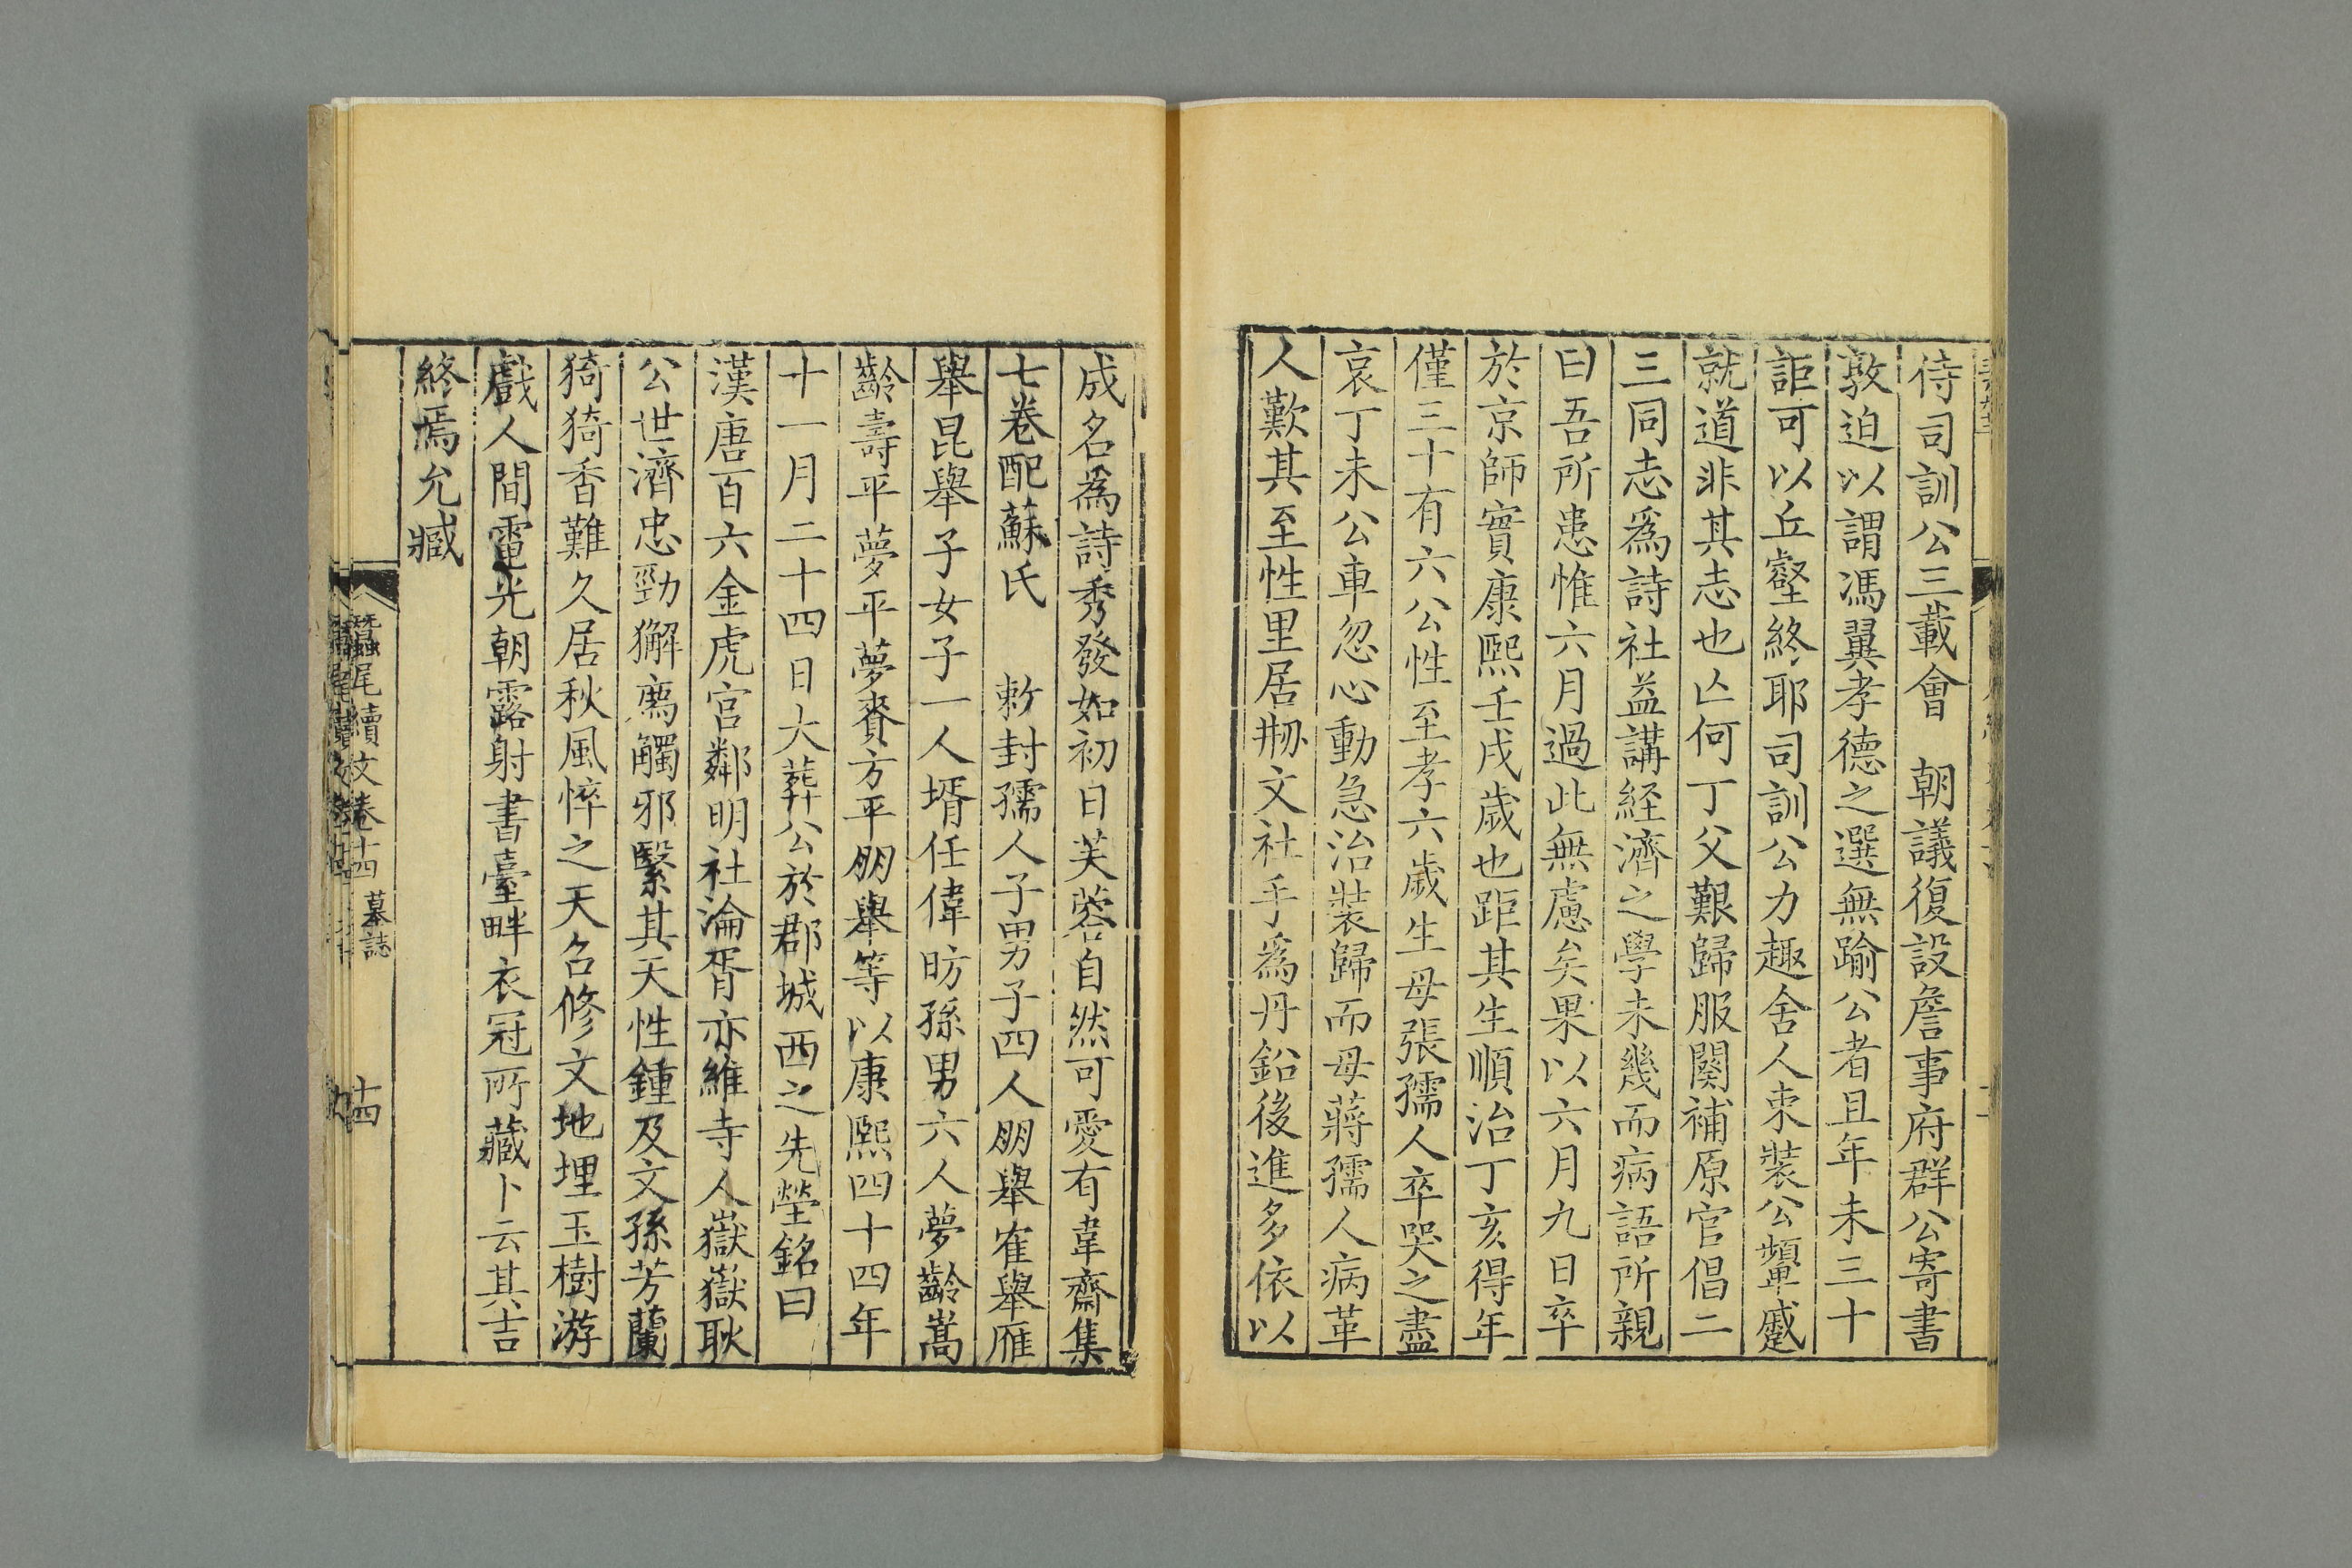 侍司訓公三載會　朝議復設詹事府群公寄書
敦迫以謂馮翼孝德之選無踰公者且年未三十
詎可以丘壑終耶司訓公力趣舍人束裝公顰蹙
就道非其志也亾何丁父艱歸服闋補原官倡二
三同志爲詩社益講経濟之學未幾而病語所親
曰吾所患惟六月過此無慮矣果以六月九日卒
於京師實康熙壬戌歲也距其生順治丁亥得年
僅三十有六公性至孝六歲生母張孺人卒哭之盡
哀丁未公車忽心動急治裝歸而母蔣孺人病革
人歎其至性里居刱文社手爲丹鉛後進多依以
成名爲詩秀發如初日芙蓉自然可愛有韋齋集
七卷配蘇氏　敕封孺人子男子四人朋舉寉舉雁
舉昆舉子女子一人壻任偉昉孫男六人夢齡嵩
齡壽平夢平夢賚方平朋舉等以康熙四十四年
十一月二十四日大葬公於郡城西之先塋銘曰
漢唐百六金虎宮鄰明社淪胥亦維寺人嶽嶽耿
公世濟忠勁獬廌觸邪繄其天性鍾及文孫芳蘭
猗猗香難久居秋風悴之天召修文地埋玉樹游
戲人間電光朝露射書臺畔衣冠所藏卜云其吉
終焉允臧
蠶尾續文卷十四
墓誌
十四